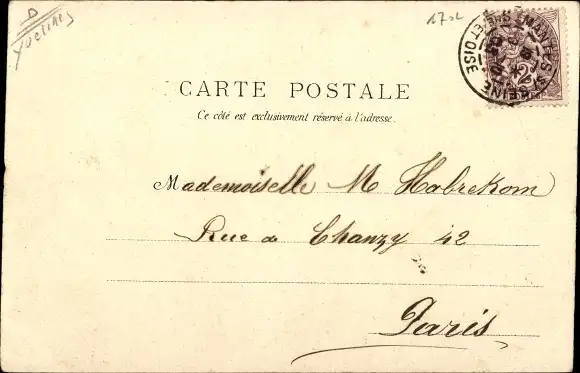 D
Yvelines
CARTE POSTALE
Ce côté est exclusivement réservé à l'adresse.
MANTES S. SEINE
SNE ET OISE
Mademoiselle M Habrekorn
Rue de Chanzy 42
Paris